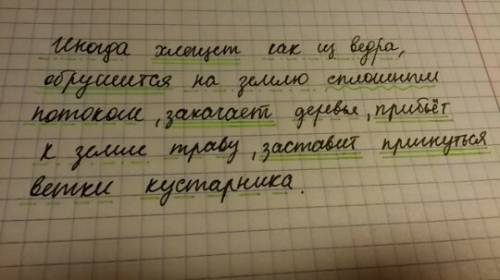 Иногда хлощет как из ведра,
обрушится на землю сплошным
потоком, закачает деревья, прибьёт
к земле траву, заставит пригнуться
ветки кустарника.